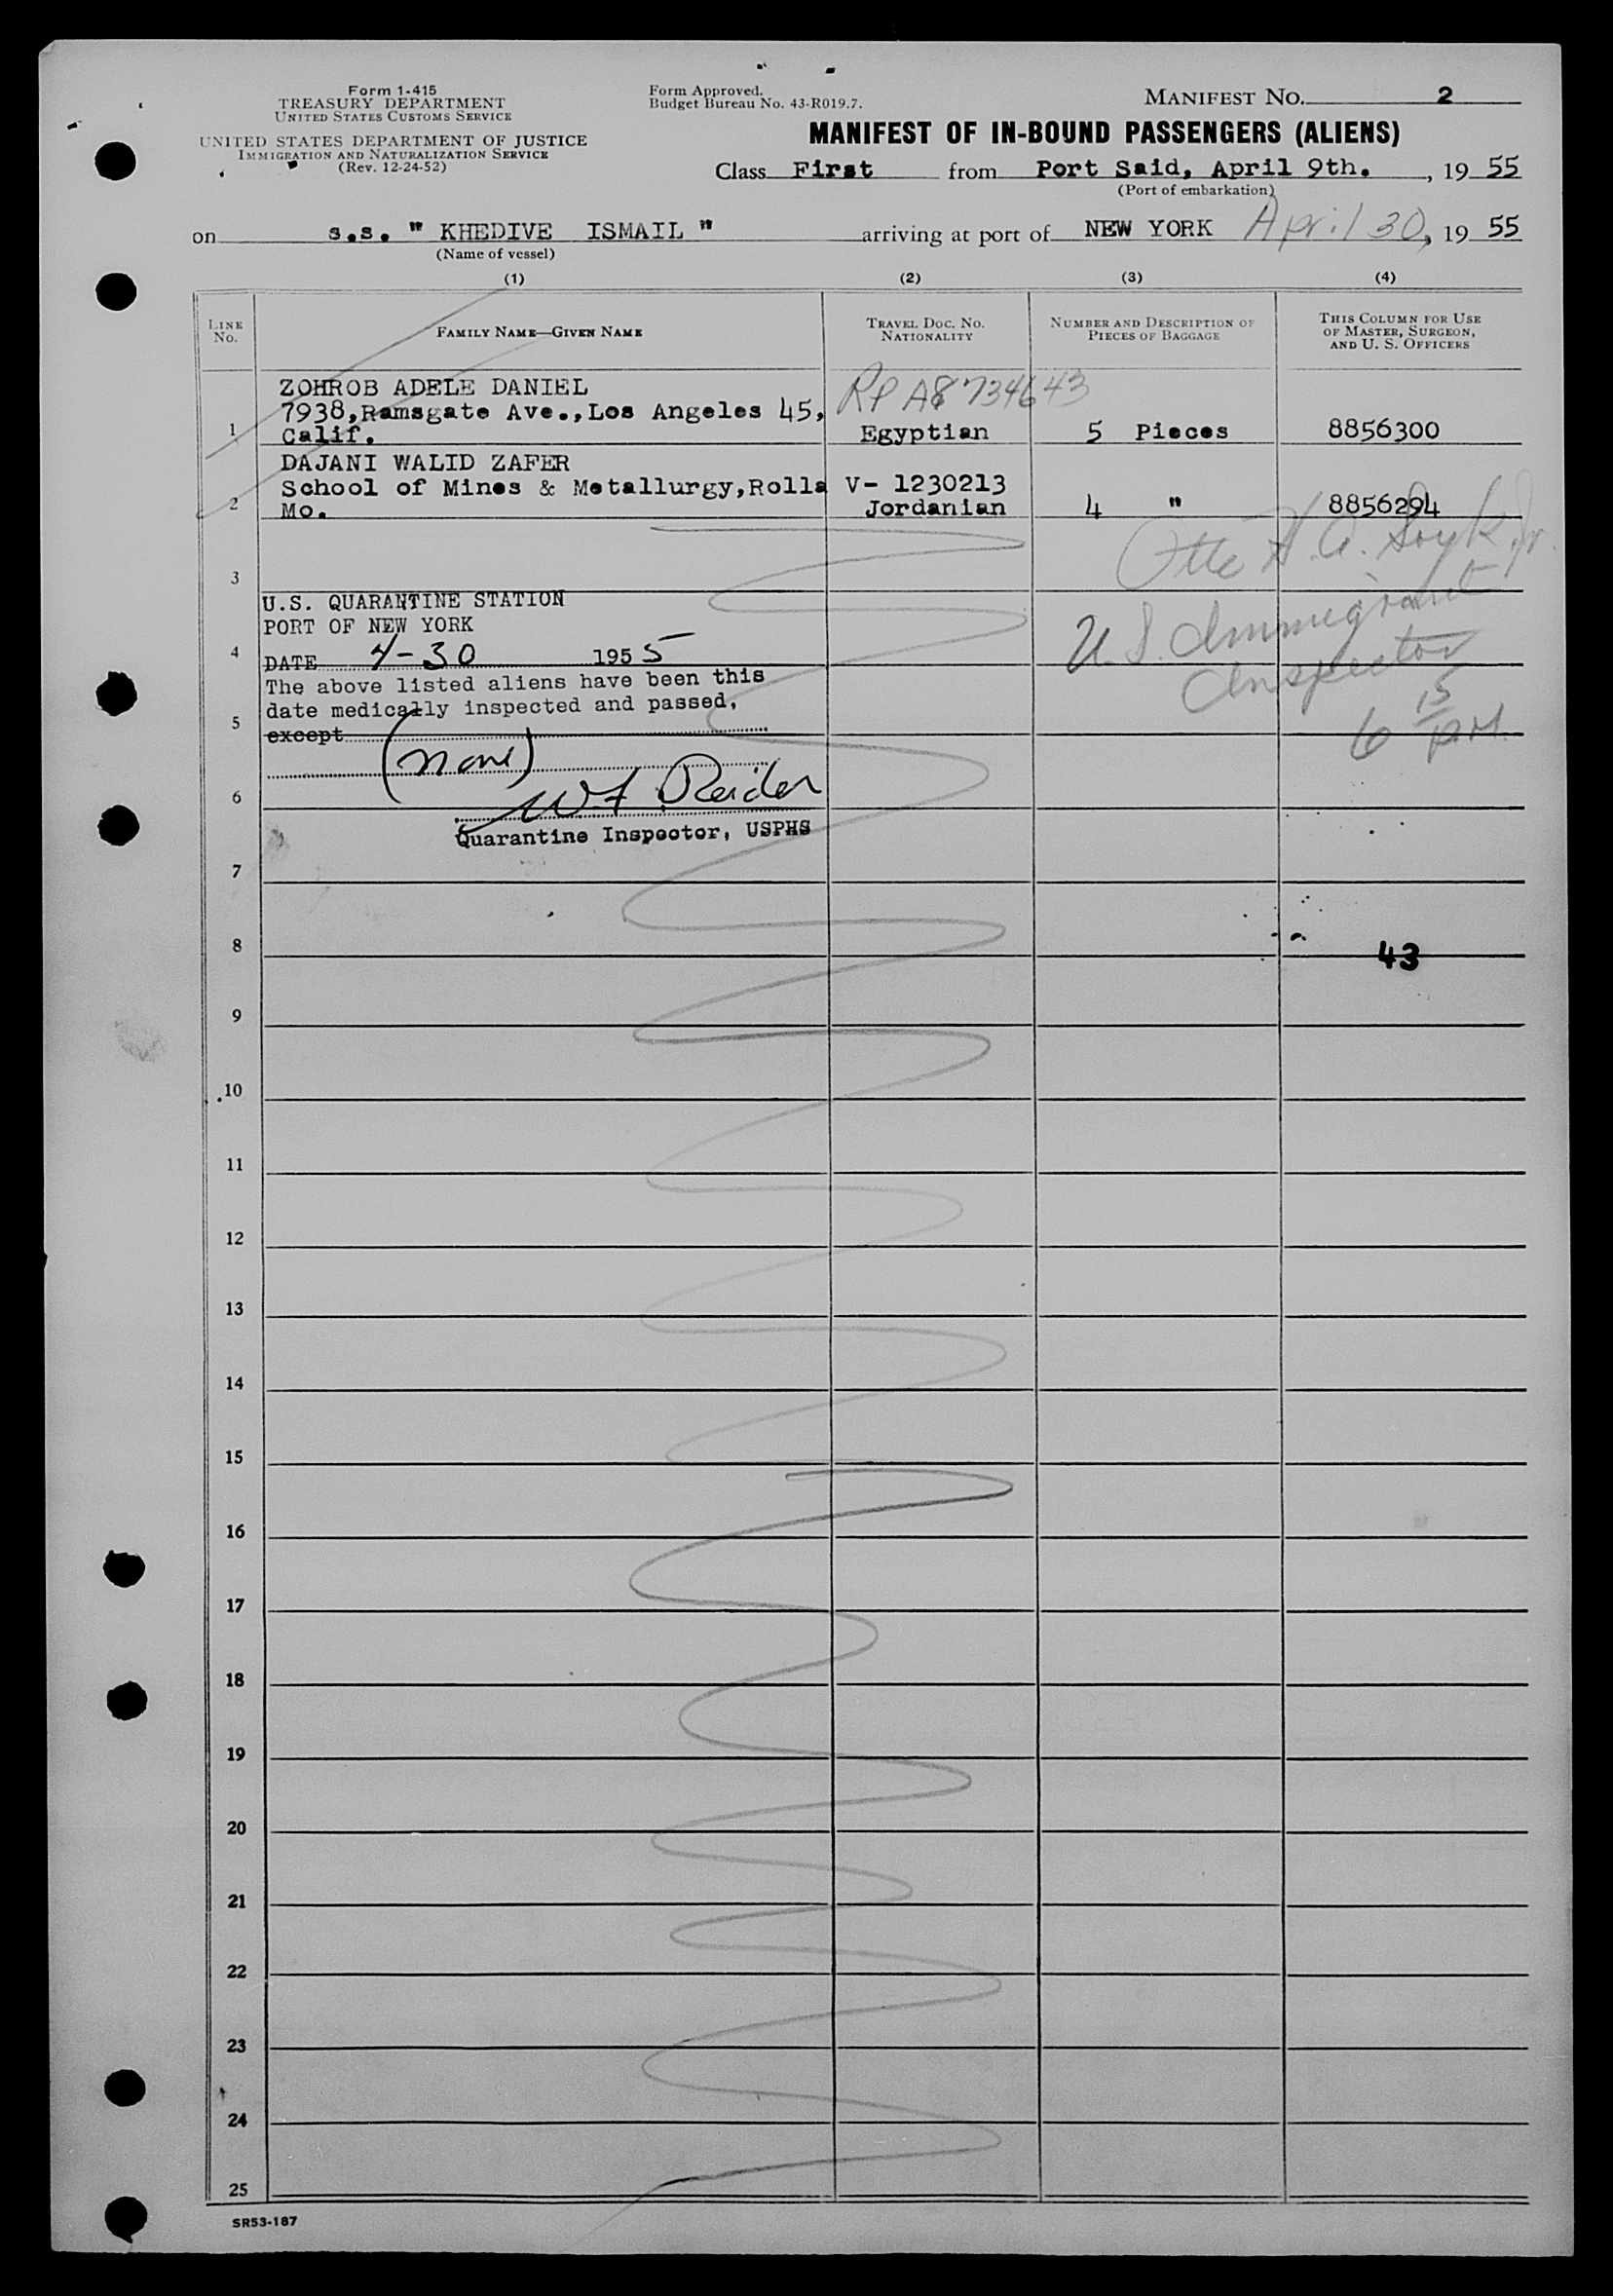 Form 1-415
TREASURY DEPARTMENT
UNITED STATES CUSTOMS SERVICE
UNITED STATES DEPARTMENT OF JUSTICE
IMMIGRATION AND NATURALIZATION SERVICE
(Rev. 12-24-52)
Form Approved.
Budget Bureau No. 43-R019.7.
MANIFEST NO. 2
MANIFEST OF IN-BOUND PASSENGERS (ALIENS)
Class First from Port Said, April 9th. , 19 55
(Port of embarkation)
on s.s. " KHEDIVE ISMAIL " arriving at port of NEW YORK April 30, 19 55
(Name of vessel)
(1) (2) (3) (4)
LINE No. FAMILY NAME—GIVEN NAME TRAVEL DOC. NO. NATIONALITY NUMBER AND DESCRIPTION OF PIECES OF BAGGAGE THIS COLUMN FOR USE OF MASTER, SURGEON, AND U. S. OFFICERS
ZOHROB ADELE DANIEL RP A8734643
7938,Ramsgate Ave.,Los Angeles 45,
1 Calif. Egyptian 5 Pieces 8856300
DAJANI WALID ZAFER
School of Mines & Metallurgy,Rolla V- 1230213
2 Mo. Jordanian 4 " 8856294
Otto H. A. Jr.
3
U.S. QUARANTINE STATION
PORT OF NEW YORK
U. S. Immigrant
4 DATE 4-30 1955
Inspector
The above listed aliens have been this
date medically inspected and passed,
5 except
6 15 P.M.
(none)
6 Reider
Quarantine Inspector, USPHS
7
8 43
9
10
11
12
13
14
15
16
17
18
19
20
21
22
23
24
25
SR53-187